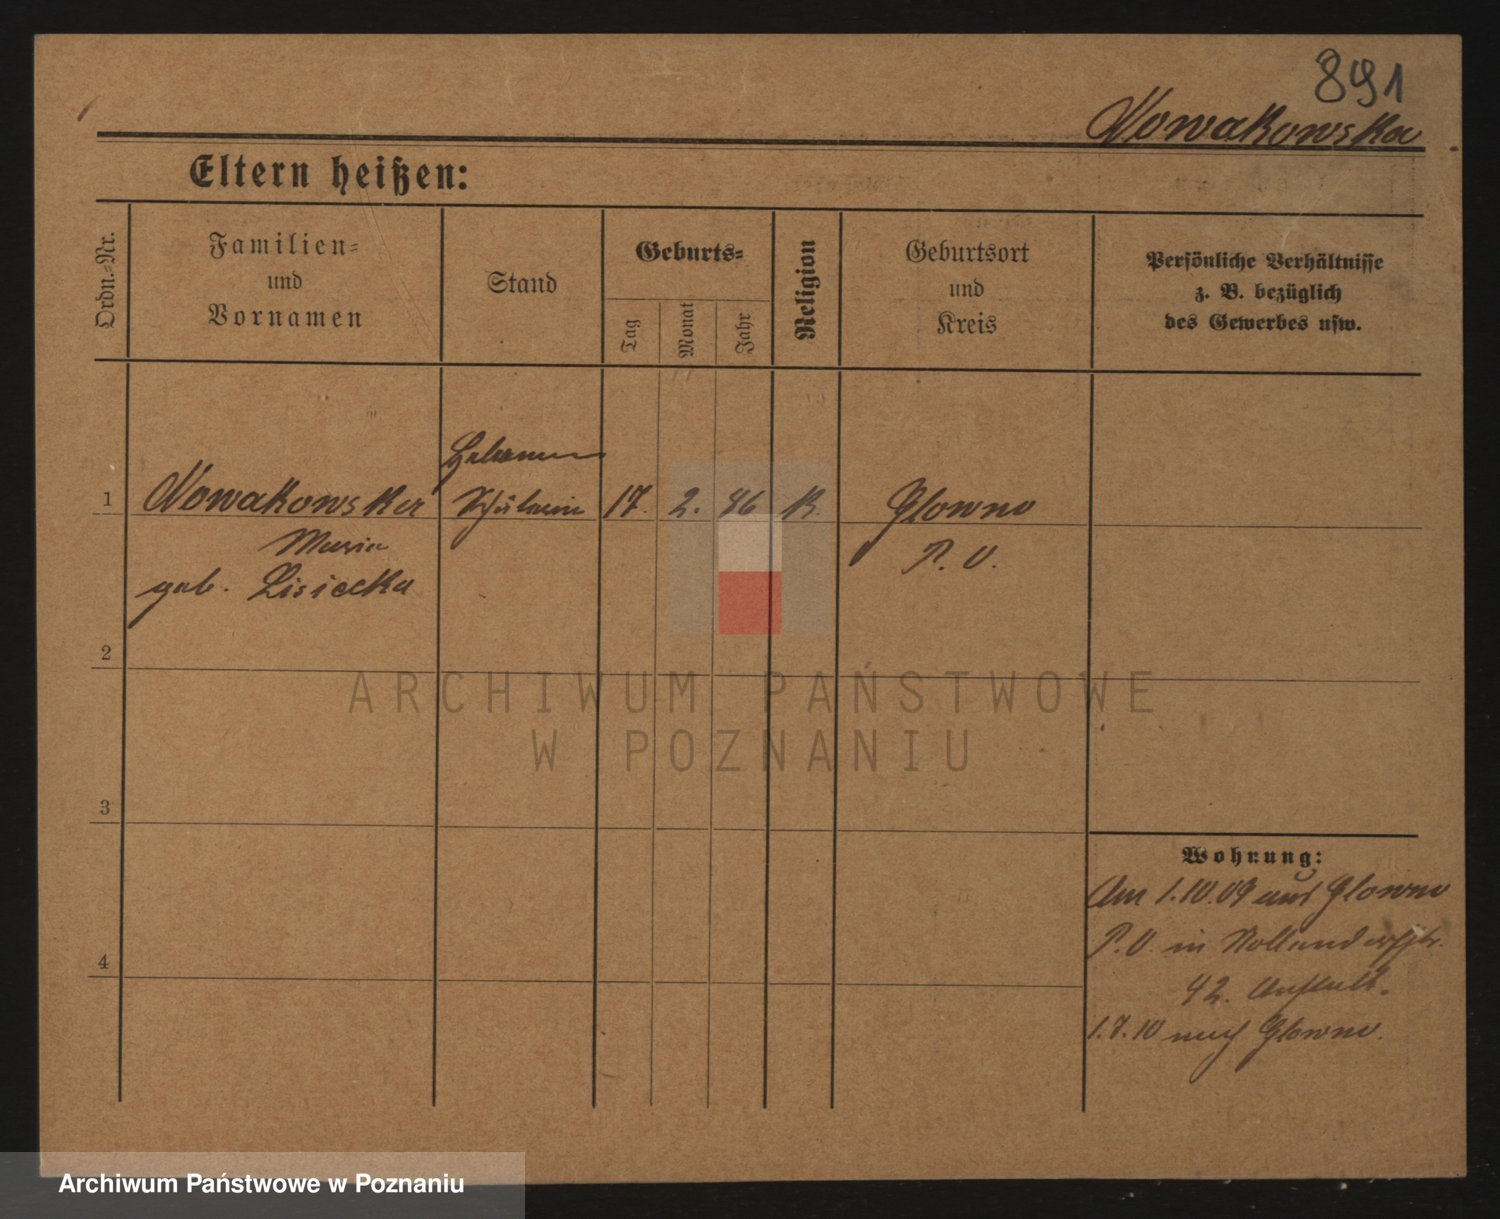 891
Nowakowska
Eltern heißen:
Ordn.-Nr.
Familien-
und
Vornamen
Stand
Geburts-
Tag
Monat
Jahr
Religion
Geburtsort
und
Kreis
Persönliche Verhältnisse
z. B. bezüglich
des Gewerbes usw.
Hebammen
1 Nowakowska Schülerin 17. 2. K. Glowno
Maria P. O.
geb. Lisiecka
2
ARCHIWUM PAŃSTWOWE
W POZNANIU
3
Wohnung:
Am 1.10.09 aus Glowno
P.O. in
42. Anstalt.
4
1.7.10 nach Glowno.
Archiwum Państwowe w Poznaniu